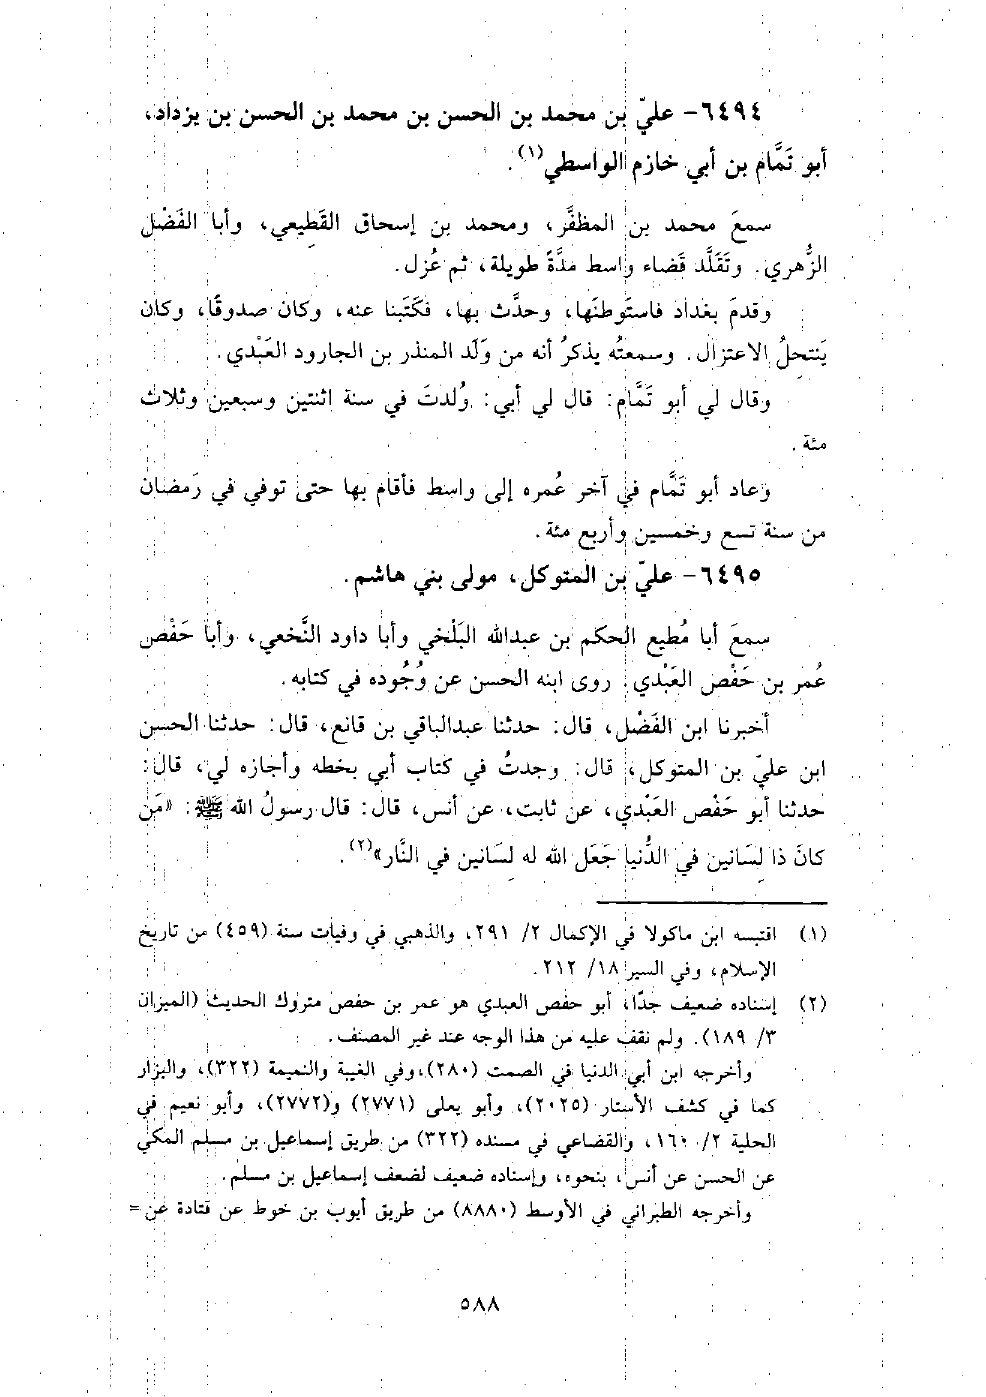 ٦٤٩٤- عليّ بن محمد بن الحسن بن محمد بن الحسن بن يزداد،
أبو تَمَّام بن أبي خازم الواسطي(١).
سمعَ محمد بن المظفَّر، ومحمد بن إسحاق القَطِيعي، وأبا الفَضْل
الزُّهري. وتَقَلَّد قَضاء واسط مدَّةً طويلة، ثم عُزل.
وقدمَ بغداد فاستَوطنَها، وحدَّث بها، فكَتَبنا عنه، وكان صدوقًا، وكان
يَنتحِلُ الاعتزال. وسمعتُه يذكرُ أنه من وَلَد المنذر بن الجارود العَبْدي.
وقال لي أبو تَمَّام: قال لي أبي: وُلدتَ في سنة اثنتين وسبعين وثلاث
مئة.
وَعاد أبو تَمَّام في آخر عُمره إلى واسط فأقام بها حتى توفي في رَمضان
من سنة تسع وخمسين وأربع مئة.
٦٤٩٥- عليّ بن المتوكل، مولى بني هاشم.
سمعَ أبا مُطيع الحكم بن عبدالله البَلْخي وأبا داود النَّخعي، وأبا حَفْص
عُمر بن حَفْص العَبْدي. روى ابنه الحسن عن وُجُوده في كتابه.
أخبرنا ابن الفَضْل، قال: حدثنا عبدالباقي بن قانع، قال: حدثنا الحسن
ابن عليّ بن المتوكل، قال: وجدتُ في كتاب أبي بخطه وأجازه لي، قال:
حدثنا أبو حَفْص العَبْدي، عن ثابت، عن أنس، قال: قال رسولُ الله ﷺ: «مَن
كانَ ذا لِسَانين في الدُّنيا جَعَل الله له لسَانين في النَّار»(٢).
(١) اقتبسه ابن ماكولا في الإكمال ٢/ ٢٩١، والذهبي في وفيات سنة (٤٥٩) من تاريخ
الإسلام، وفي السير ١٨/ ٢١٢.
(٢) إسناده ضعيف جدًا، أبو حفص العبدي هو عمر بن حفص متروك الحديث (الميزان
٣/ ١٨٩). ولم نقف عليه من هذا الوجه عند غير المصنف.
وأخرجه ابن أبي الدنيا في الصمت (٢٨٠)، وفي الغيبة والنميمة (٣٢٢)، والبزار
كما في كشف الأستار (٢٠٢٥)، وأبو يعلى (٢٧٧١) و(٢٧٧٢)، وأبو نعيم في
الحلية ٢/ ١٦٠، والقضاعي في مسنده (٣٢٢) من طريق إسماعيل بن مسلم المكي
عن الحسن عن أنس، بنحوه، وإسناده ضعيف لضعف إسماعيل بن مسلم.
وأخرجه الطبراني في الأوسط (٨٨٨٠) من طريق أيوب بن خوط عن قتادة عن=
٥٨٨